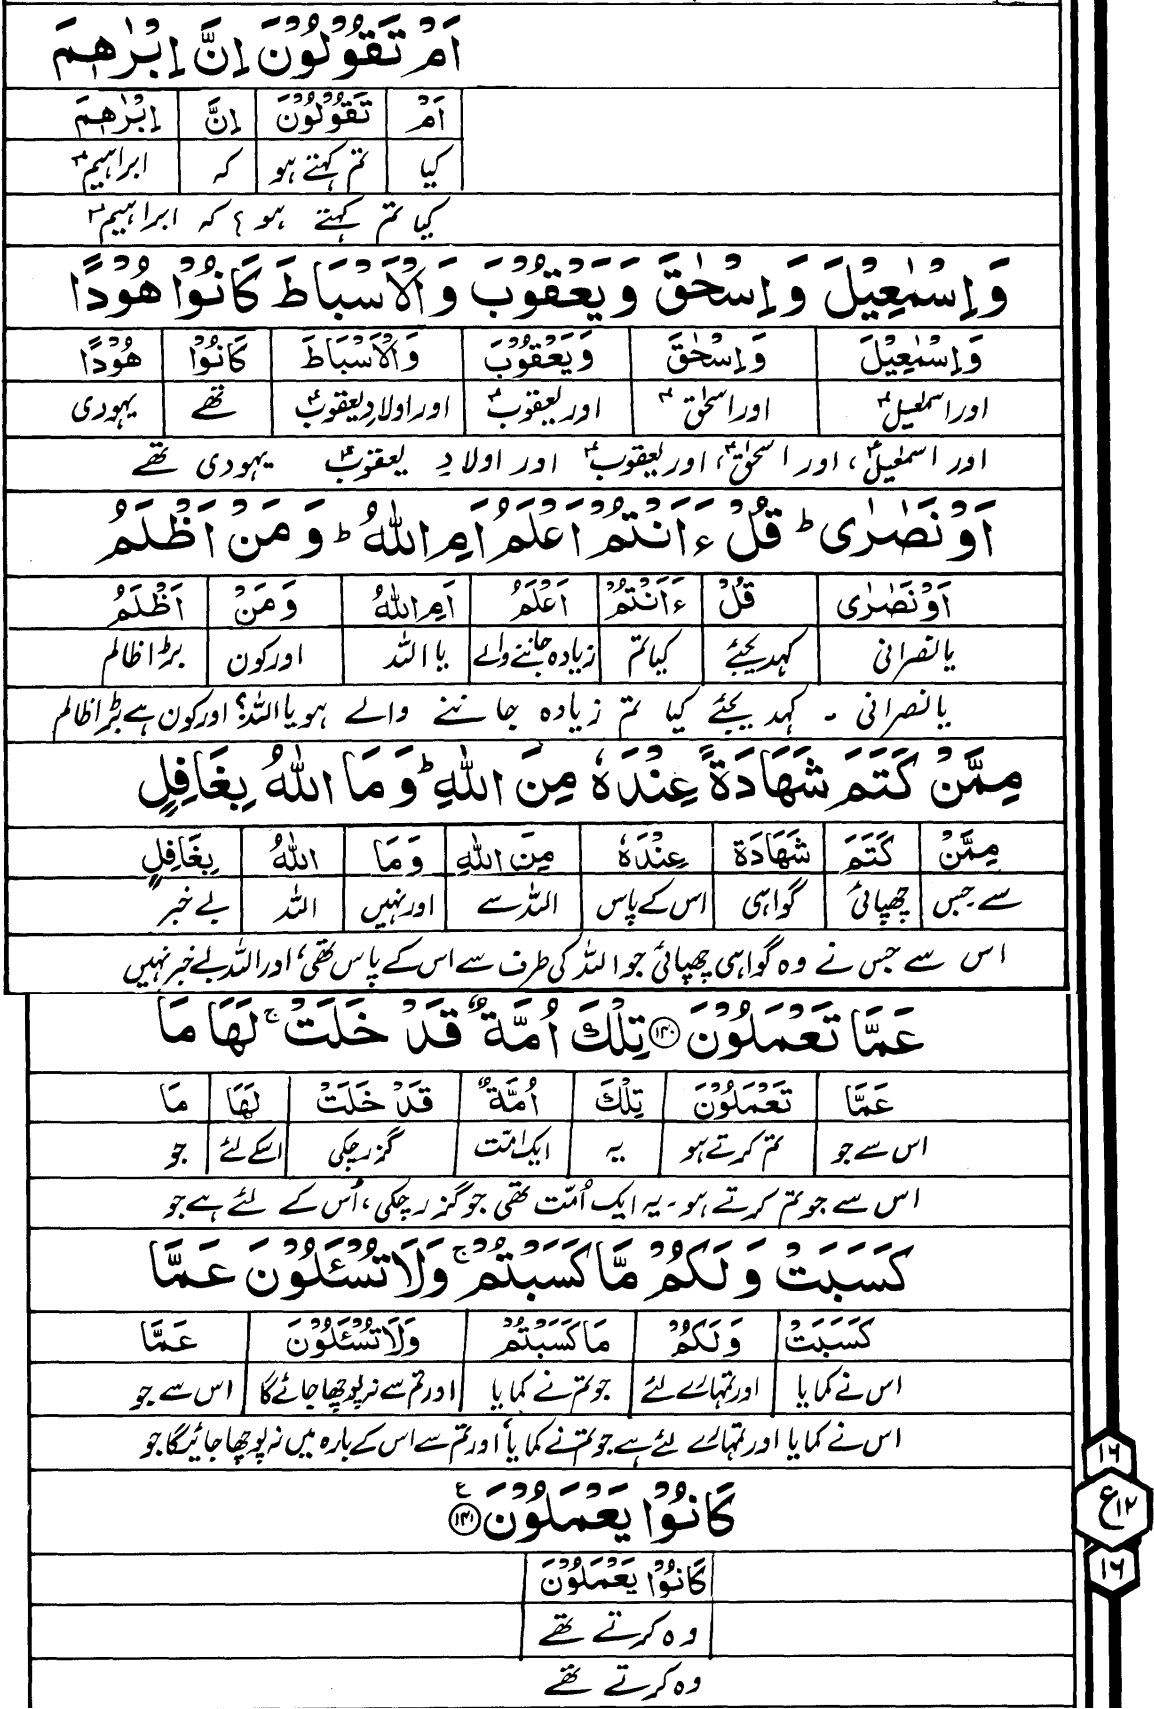 اَمْ تَقُوْلُوْنَ اِنَّ اِبْرٰهٖمَ
اَمْ تَقُوْلُوْنَ اِنَّ اِبْرٰهٖمَ
کیا تم کہتے ہو کہ ابراہیمؑ
کیا تم کہتے ہو؟ کہ ابراہیمؑ
وَاِسْمٰعِيْلَ وَاِسْحٰقَ وَيَعْقُوْبَ وَالْاَسْبَاطَ كَانُوْا هُوْدًا
وَاِسْمٰعِيْلَ وَاِسْحٰقَ وَيَعْقُوْبَ وَالْاَسْبَاطَ كَانُوْا هُوْدًا
اور اسمٰعیلؑ اور اسحٰقؑ اور یعقوبؑ اور اولادِ یعقوبؑ تھے یہودی
اور اسمٰعیلؑ، اور اسحٰقؑ، اور یعقوبؑ اور اولادِ یعقوبؑ یہودی تھے
اَوْ نَصٰرٰى ؕ قُلْ ءَاَنْتُمْ اَعْلَمُ اَمِ اللّٰهُ ؕ وَمَنْ اَظْلَمُ
اَوْ نَصٰرٰى قُلْ ءَاَنْتُمْ اَعْلَمُ اَمِ اللّٰهُ وَمَنْ اَظْلَمُ
یا نصرانی کہدیجئے کیا تم زیادہ جاننے والے یا اللہ اور کون بڑا ظالم
یا نصرانی ۔ کہدیجئے کیا تم زیادہ جاننے والے ہو یا اللہ؟ اور کون ہے بڑا ظالم
مِمَّنْ كَتَمَ شَهَادَةً عِنْدَهٗ مِنَ اللّٰهِ ؕ وَمَا اللّٰهُ بِغَافِلٍ
مِمَّنْ كَتَمَ شَهَادَةً عِنْدَهٗ مِنَ اللّٰهِ وَمَا اللّٰهُ بِغَافِلٍ
سے جس چھپائی گواہی اس کے پاس اللہ سے اور نہیں اللہ بے خبر
اس سے جس نے وہ گواہی چھپائی جو اللہ کی طرف سے اس کے پاس تھی، اور اللہ بے خبر نہیں
عَمَّا تَعْمَلُوْنَ ۝۱۴۰ تِلْكَ اُمَّةٌ قَدْ خَلَتْ ۚ لَهَا مَا
عَمَّا تَعْمَلُوْنَ تِلْكَ اُمَّةٌ قَدْ خَلَتْ لَهَا مَا
اس سے جو تم کرتے ہو یہ ایک امت گزر چکی اسکے لئے جو
اس سے جو تم کرتے ہو۔ یہ ایک اُمّت تھی جو گزر چکی، اُس کے لئے ہے جو
كَسَبَتْ وَلَكُمْ مَّا كَسَبْتُمْ ۚ وَلَا تُسْئَلُوْنَ عَمَّا
كَسَبَتْ وَلَكُمْ مَا كَسَبْتُمْ وَلَا تُسْئَلُوْنَ عَمَّا
اس نے کمایا اور تمہارے لئے جو تم نے کمایا اور تم سے نہ پوچھا جائے گا اس سے جو
اس نے کمایا اور تمہارے لئے ہے جو تم نے کمایا، اور تم سے اس کے بارہ میں نہ پوچھا جائیگا جو
كَانُوْا يَعْمَلُوْنَ ۝۱۴۱ ع
كَانُوْا يَعْمَلُوْنَ
وہ کرتے تھے
وہ کرتے تھے
۱۶
ع ۱۲
۱۶